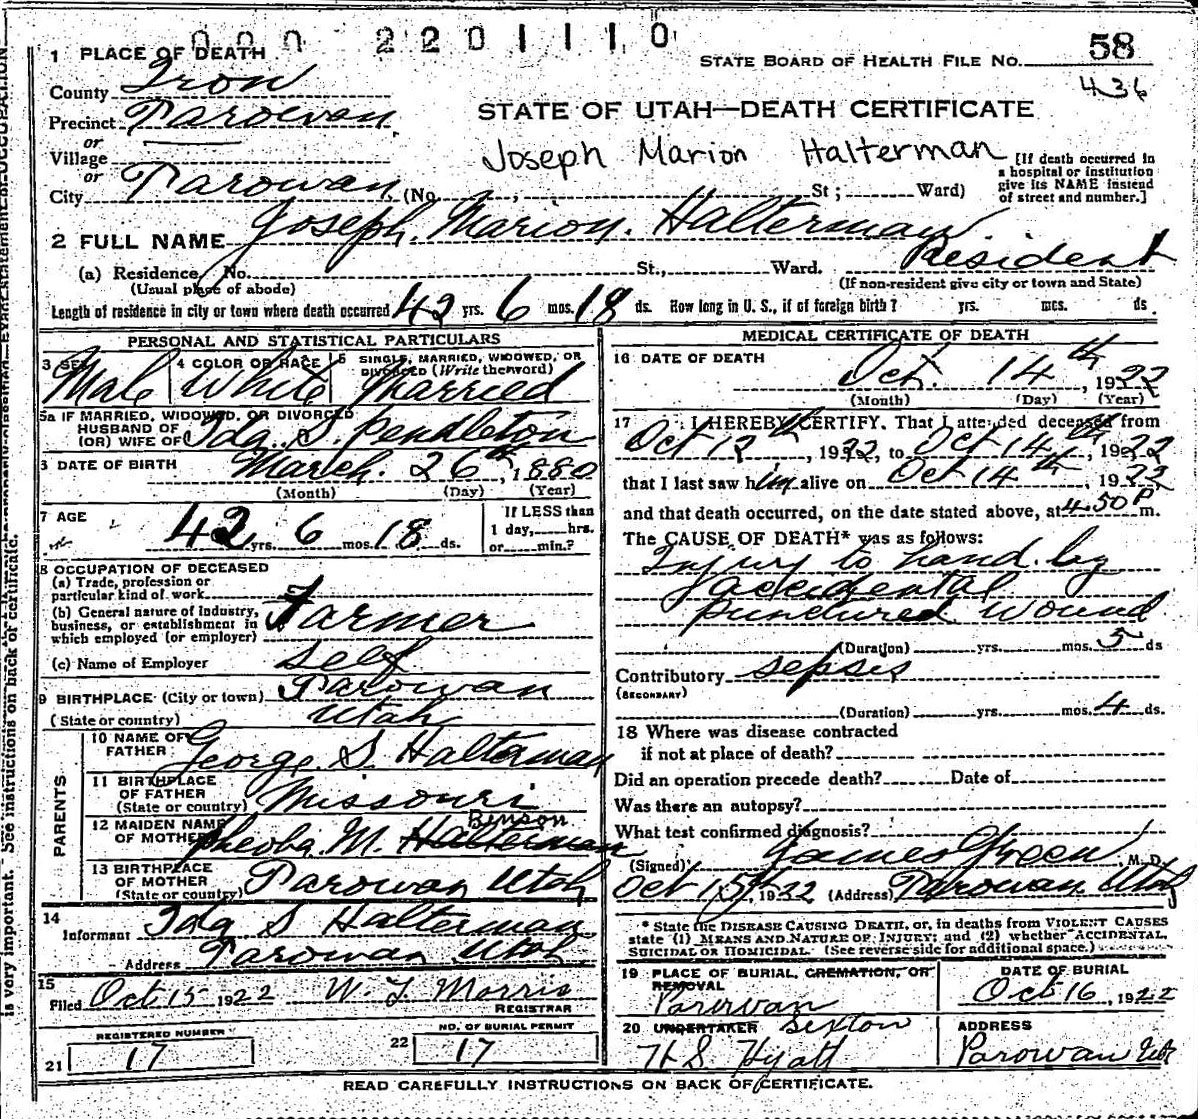 000 2201110
1 PLACE OF DEATH
STATE BOARD OF HEALTH FILE No. 58
436
County Iron
Precinct Parowan
or
Village
or
City Parowan (No. St; Ward)
STATE OF UTAH—DEATH CERTIFICATE
Joseph Marion Halterman
[If death occurred in
a hospital or institution
give its NAME instead
of street and number.]
2 FULL NAME Joseph Marion Halterman
(a) Residence, No. St., Ward. Resident
(Usual place of abode) (If non-resident give city or town and State)
Length of residence in city or town where death occurred 42 yrs. 6 mos. 18 ds. How long in U. S., if of foreign birth? yrs. mos. ds
PERSONAL AND STATISTICAL PARTICULARS
3 SEX Male
4 COLOR OR RACE White
5 SINGLE, MARRIED, WIDOWED, OR
DIVORCED (Write the word)
Married
5a IF MARRIED, WIDOWED, OR DIVORCED
HUSBAND OF
(OR) WIFE OF Ida S. Pendleton
DATE OF BIRTH March 26th, 1880
(Month) (Day) (Year)
7 AGE 42 yrs. 6 mos. 18 ds.
If LESS than
1 day, hrs.
or min.?
8 OCCUPATION OF DECEASED
(a) Trade, profession or
particular kind of work
(b) General nature of Industry,
business, or establishment in
which employed (or employer) Farmer
(c) Name of Employer Self
9 BIRTHPLACE (City or town) Parowan
(State or country) Utah
PARENTS
10 NAME OF
FATHER George S. Halterman
11 BIRTHPLACE
OF FATHER
(State or country) Missouri
12 MAIDEN NAME
OF MOTHER Pheoba M. Halterman Benson
13 BIRTHPLACE
OF MOTHER
(State or country) Parowan Utah
14
Informant Ida S Halterman
Address Parowan Utah
15
Filed Oct 15 1922 W. T. Morris
REGISTRAR
REGISTERED NUMBER
21 17
NO. OF BURIAL PERMIT
22 17
MEDICAL CERTIFICATE OF DEATH
16 DATE OF DEATH
Oct. 14th, 1922
(Month) (Day) (Year)
17 I HEREBY CERTIFY. That I attended deceased from
Oct 12th, 1922, to Oct 14th, 1922
that I last saw him alive on Oct 14th, 1922
and that death occurred, on the date stated above, at 4.50 P m.
The CAUSE OF DEATH* was as follows:
Injury to hand by
accidental
punctured wound
(Duration) yrs. mos. 5 ds
Contributory sepsis
(SECONDARY)
(Duration) yrs. mos. 4 ds.
18 Where was disease contracted
if not at place of death?
Did an operation precede death? Date of
Was there an autopsy?
What test confirmed diagnosis?
(Signed) James Green, M. D.
Oct 15th, 1922 (Address) Parowan Utah
* State the DISEASE CAUSING DEATH, or, in deaths from VIOLENT CAUSES
state (1) MEANS AND NATURE OF INJURY; and (2) whether ACCIDENTAL,
SUICIDAL OR HOMICIDAL. (See reverse side for additional space.)
19 PLACE OF BURIAL, CREMATION, OR
REMOVAL
Parowan
DATE OF BURIAL
Oct 16, 1922
20 UNDERTAKER Sexton
H S Hyatt
ADDRESS
Parowan Utah
READ CAREFULLY INSTRUCTIONS ON BACK OF CERTIFICATE.
is very important. See instructions on back of certificate.